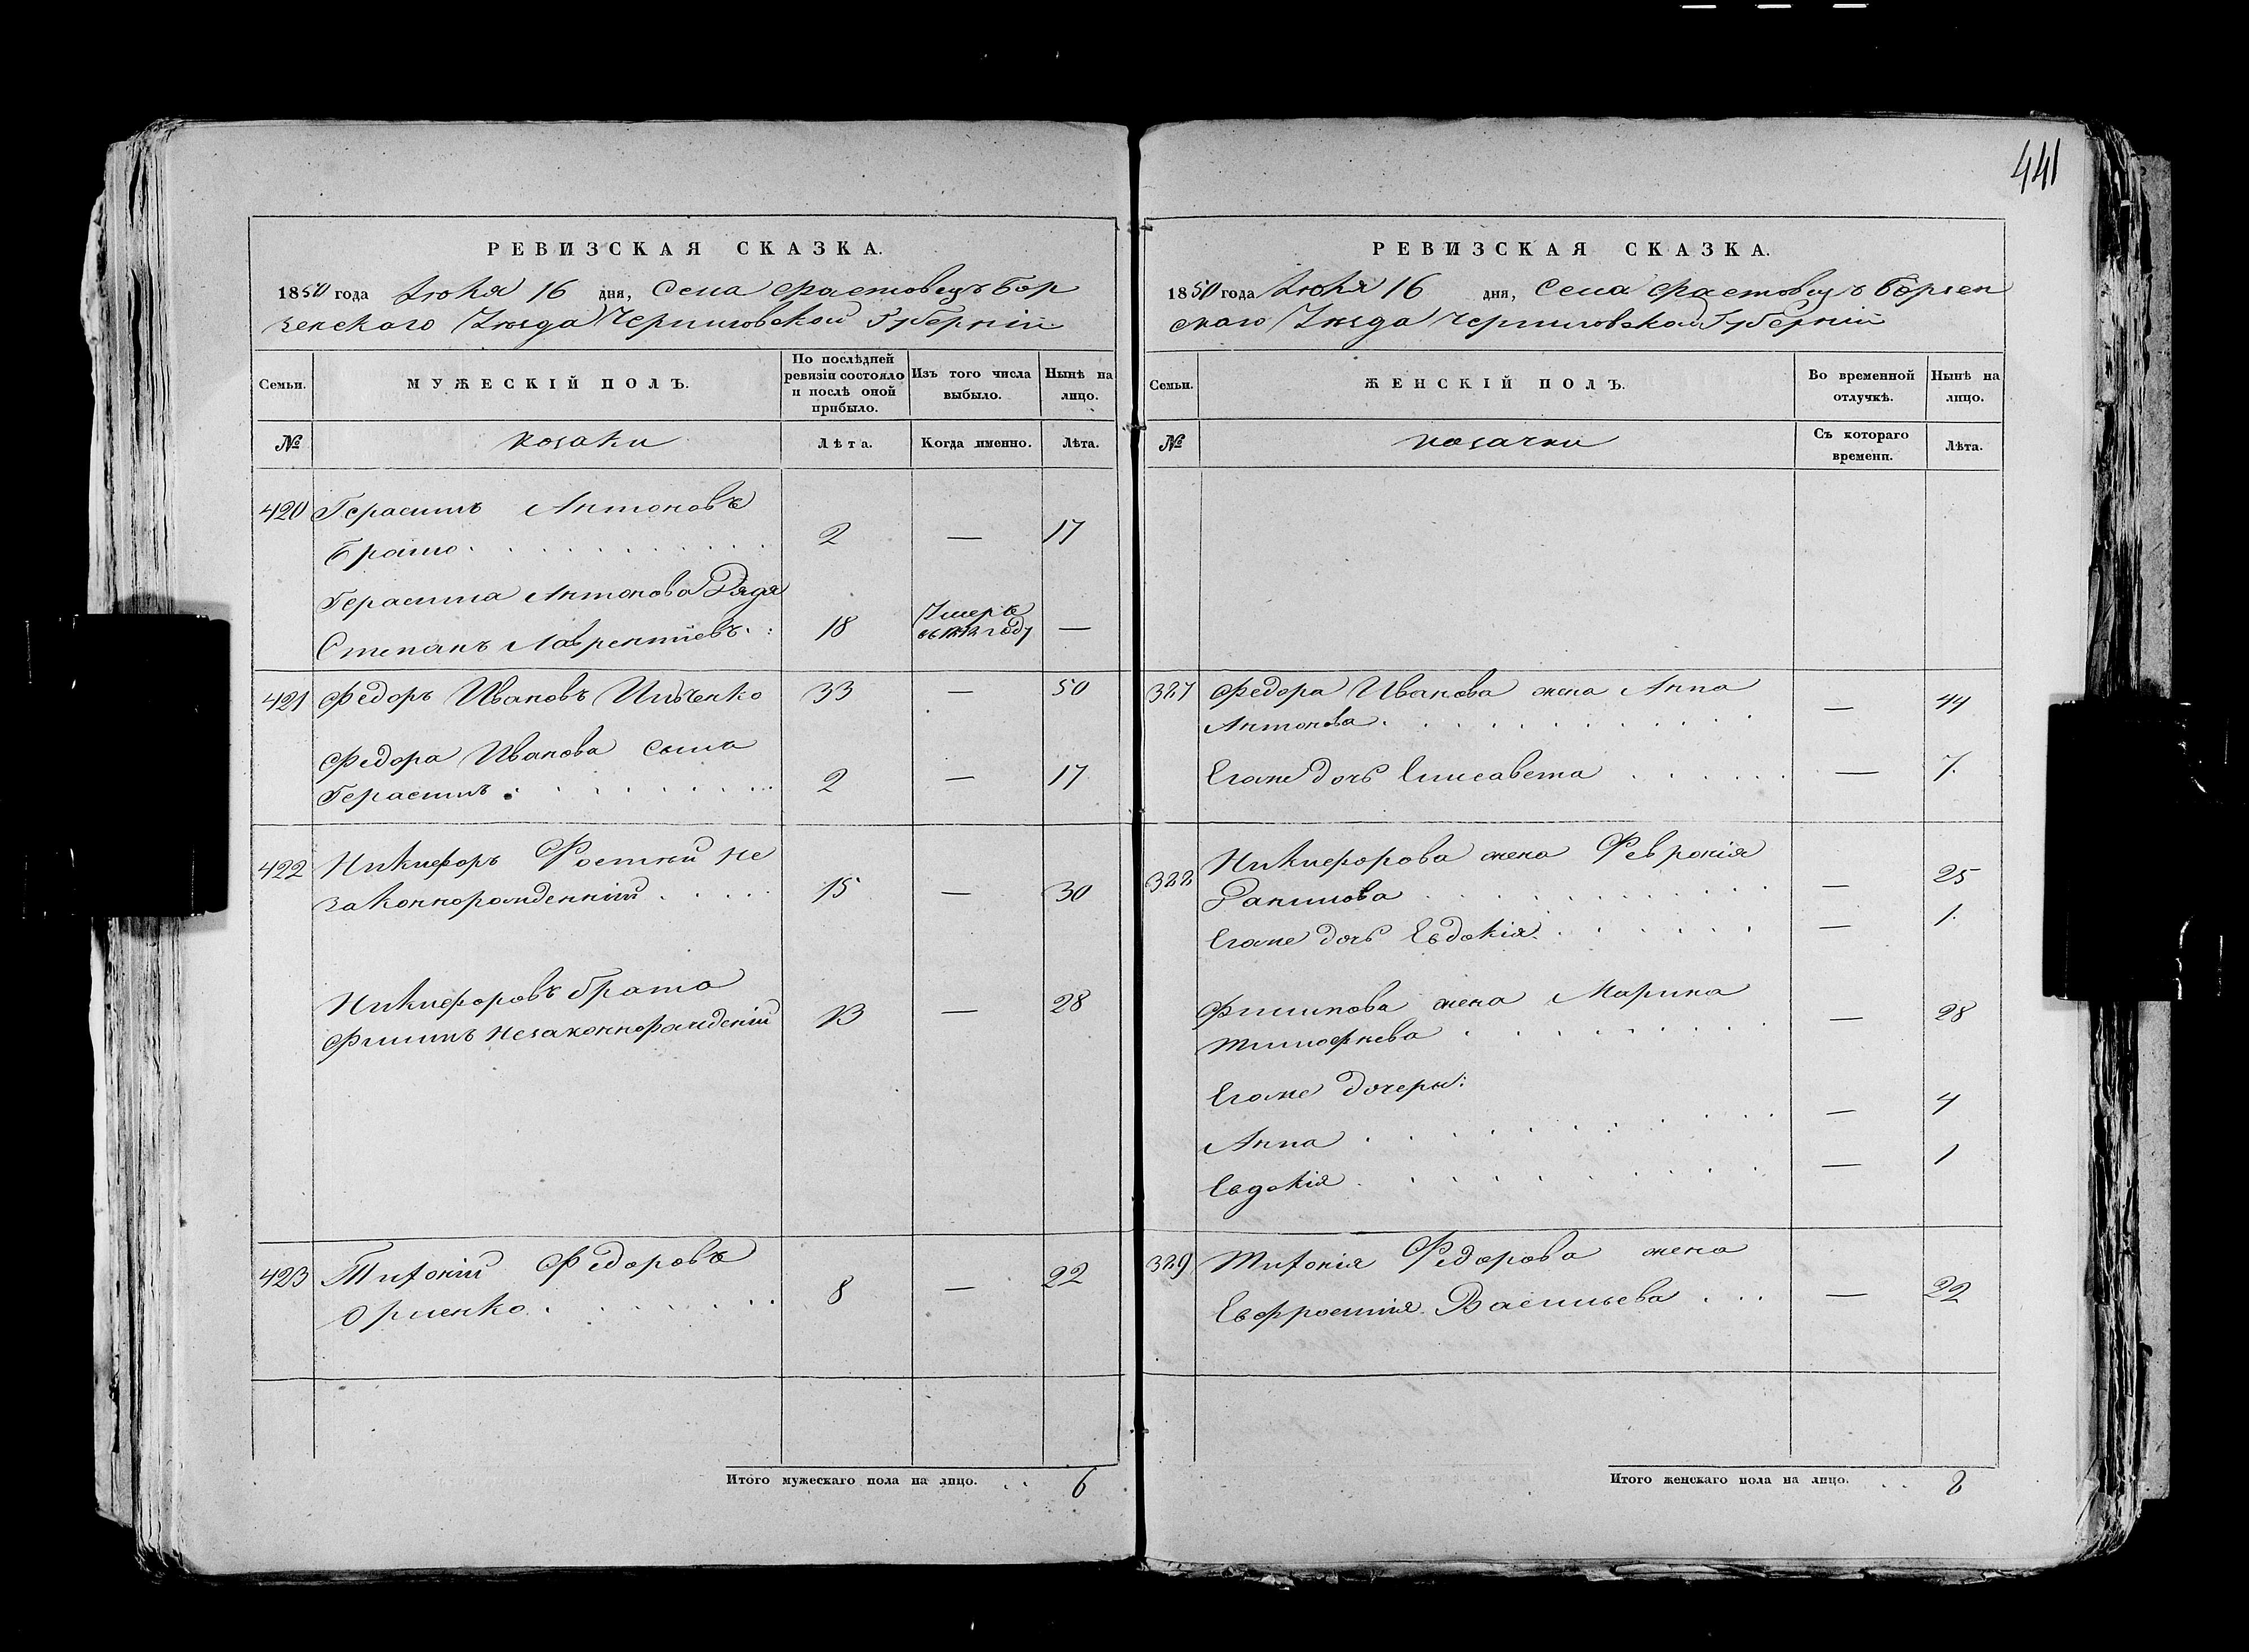 441
РЕВИЗСКАЯ СКАЗКА.
1850 года Июня 16 дня, Села Фастовецъ Бор
зенскаго Уѣзда Черниговской Губерніи
Семьи. МУЖЕСКІЙ ПОЛЪ. По послѣдней ревизіи состояло и послѣ оной прибыло. Изъ того числа выбыло. Нынѣ на лицо.
№ козаки Лѣта. Когда именно. Лѣта.
420 Герасимъ Антоновъ
2 — 17
Герасима Антонова Дядя
Степанъ Лаврентіевъ 18 Умеръ въ году —
421 Федоръ Ивановъ 33 — 50
Федора Иванова сынъ
Герасимъ 2 — 17
422 Никифоръ не
законнорожденный 15 — 30
Никифоровъ братъ
Филипъ незаконнорожденій 13 — 28
423 Федоровъ
8 — 22
Итого мужескаго пола на лицо. 6
РЕВИЗСКАЯ СКАЗКА.
1850 года Июня 16 дня, Села Фастовецъ Борзен
скаго Уѣзда Черниговской Губерніи
Семьи. ЖЕНСКІЙ ПОЛЪ. Во временной отлучкѣ. Нынѣ на лицо.
№ козачки Съ котораго времени. Лѣта.
327 Федора Иванова жена Анна
Антонова — 44
Егоже дочь Елисавета — 7.
Никифорова жена Февронія
Данилова — 25
Егоже дочь Евдокія — 1.
Филипова жена Марина
Тимофѣева — 28
Егоже дочеры:
Анна — 4
Евдокія — 1
329 Федорова жена
Евфросинія Васильева — 22
Итого женскаго пола на лицо. 8